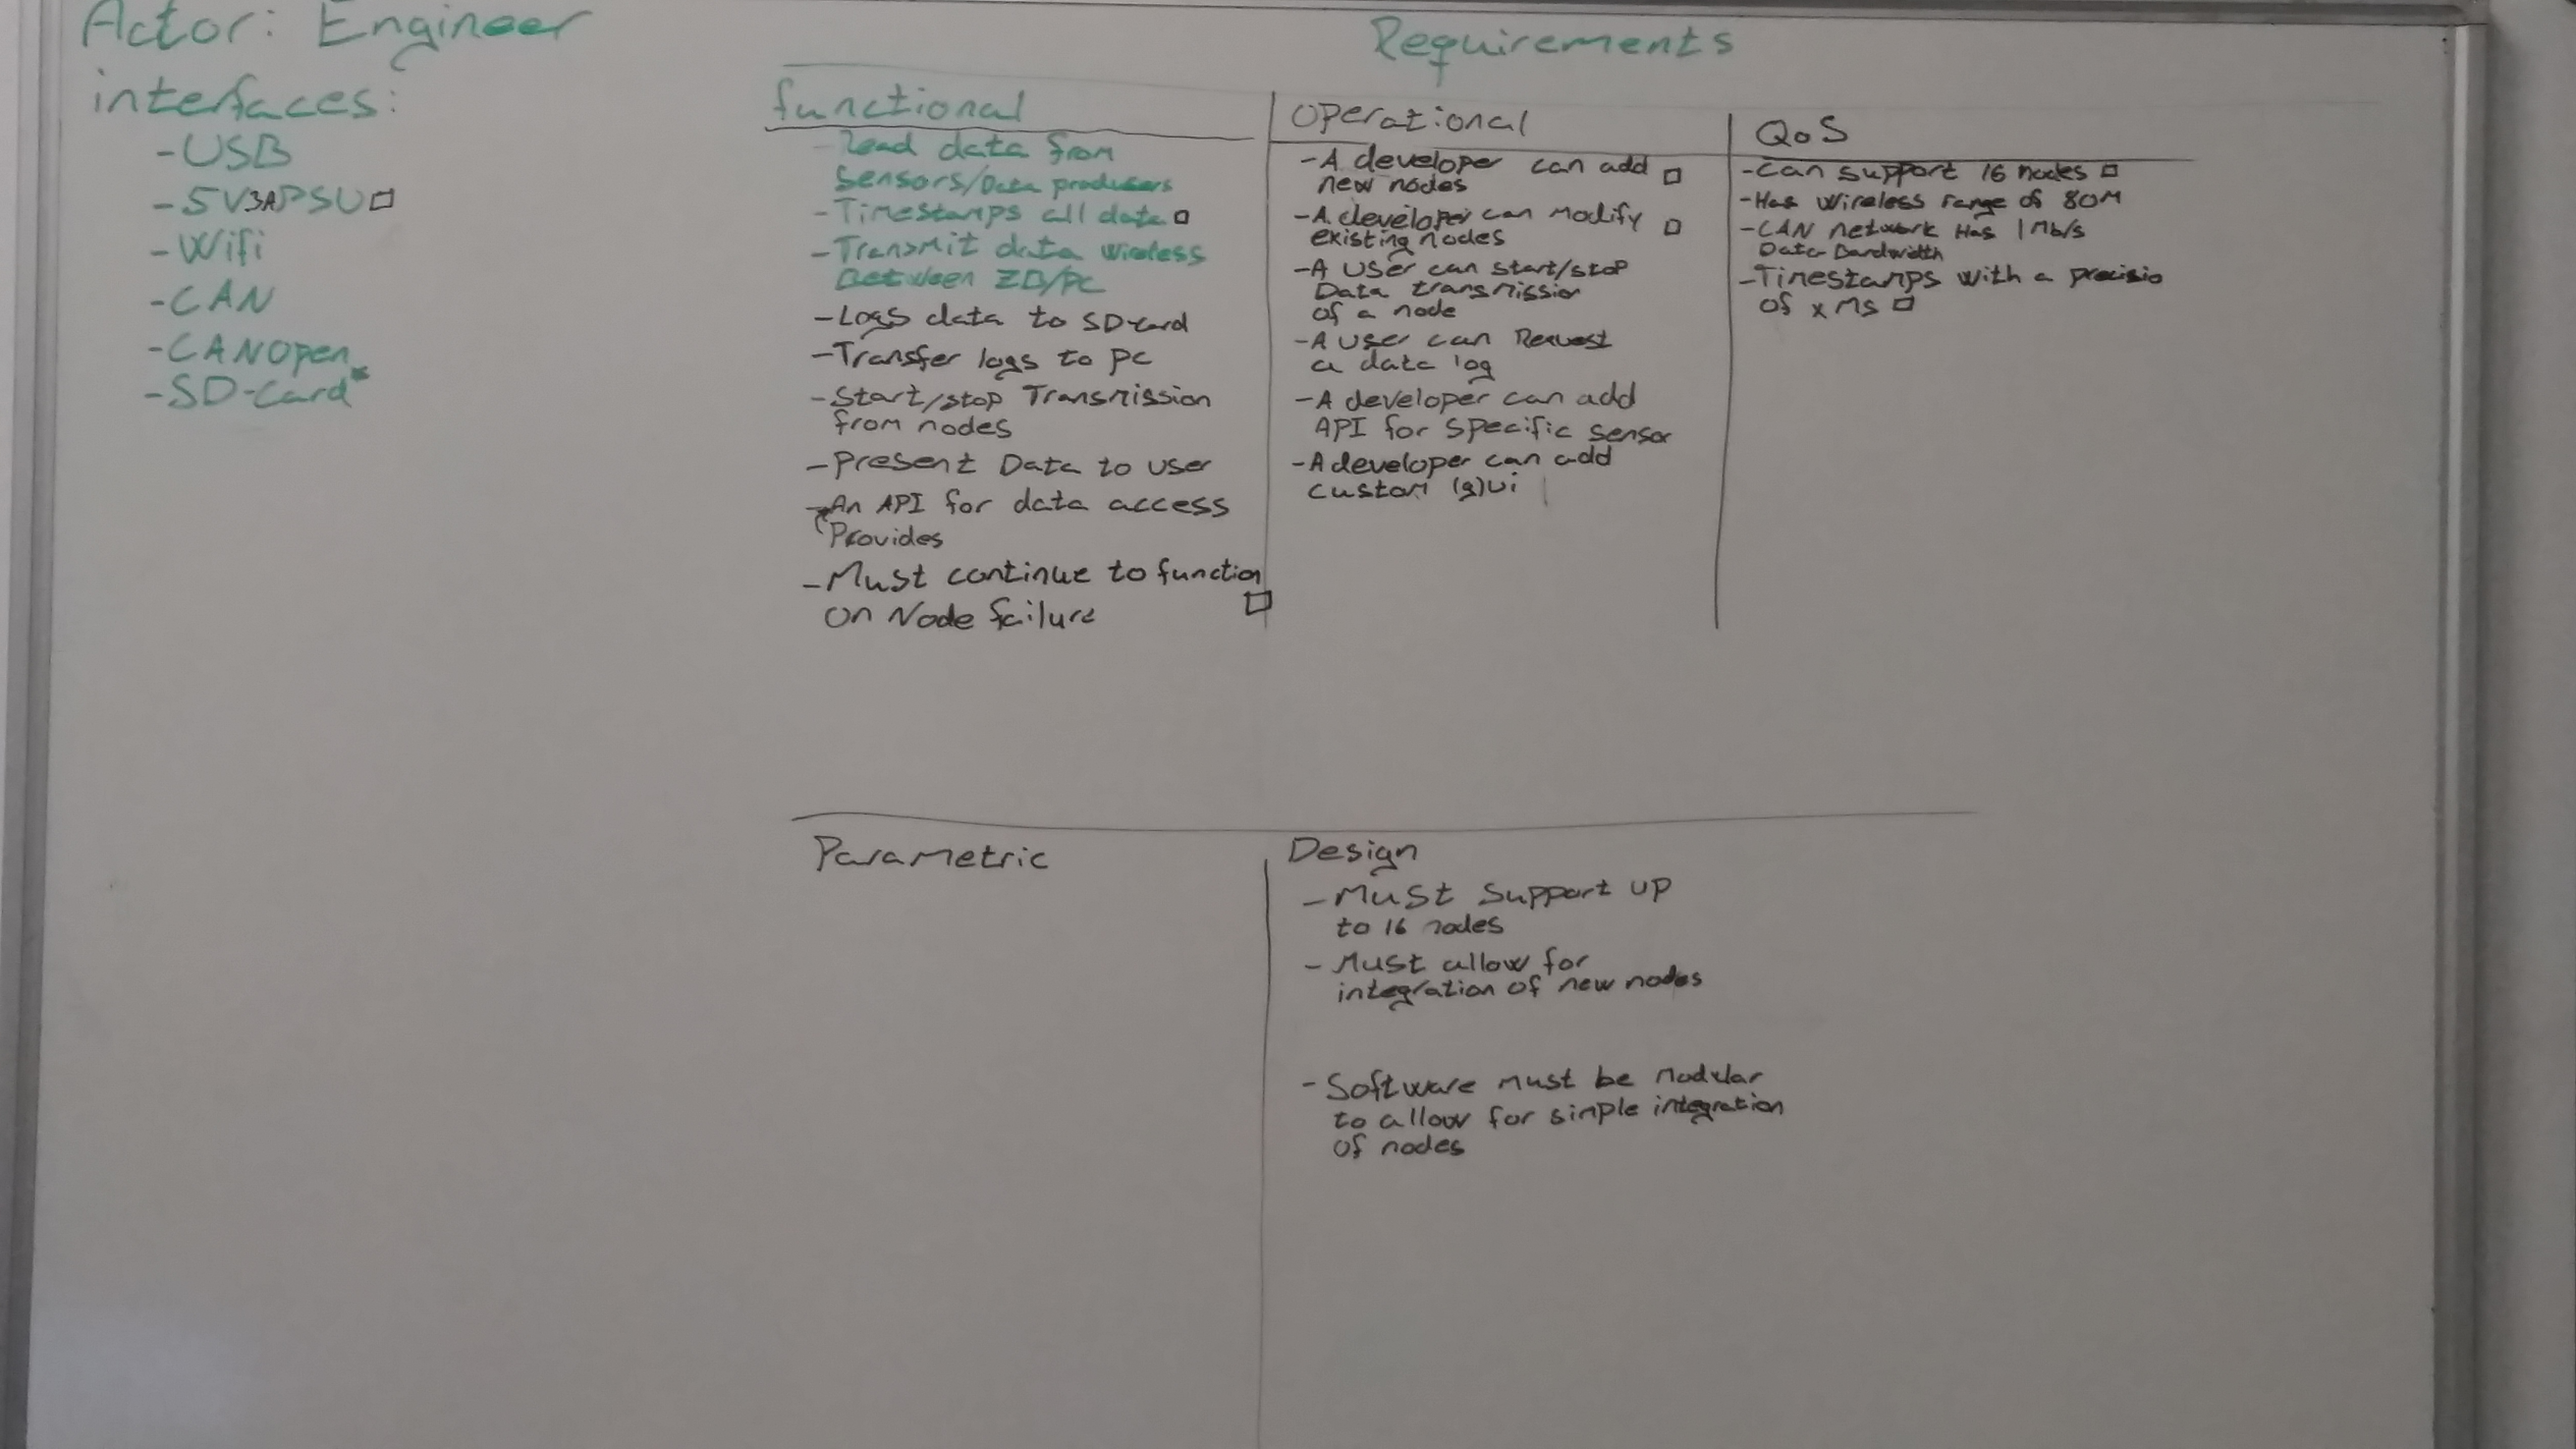 Actor: Engineer
interfaces:
-USB
-5V3APSU
-Wifi
-CAN
-CANOpen
-SD-Card*
Requirements
functional
-Read data from
Sensors/Data producers
-Timestamps all data
-Transmit data wireless
Between ZB/PC
-Logs data to SD-card
-Transfer logs to pc
-Start/stop Transmission
from nodes
-Present Data to user
-An API for data access
Provides
-Must continue to function
on Node failure
Operational
-A developer can add
new nodes
-A developer can modify
existing nodes
-A user can start/stop
Data transmission
of a node
-A user can Request
a data log
-A developer can add
API for specific sensor
-A developer can add
custom (g)ui
QoS
-Can support 16 nodes
-Has wireless range of 80M
-CAN network has 1Mb/s
Data Bandwidth
-Timestamps with a precisio
of x Ms
Parametric
Design
-Must Support up
to 16 nodes
-Must allow for
integration of new nodes
-Software must be modular
to allow for simple integration
of nodes